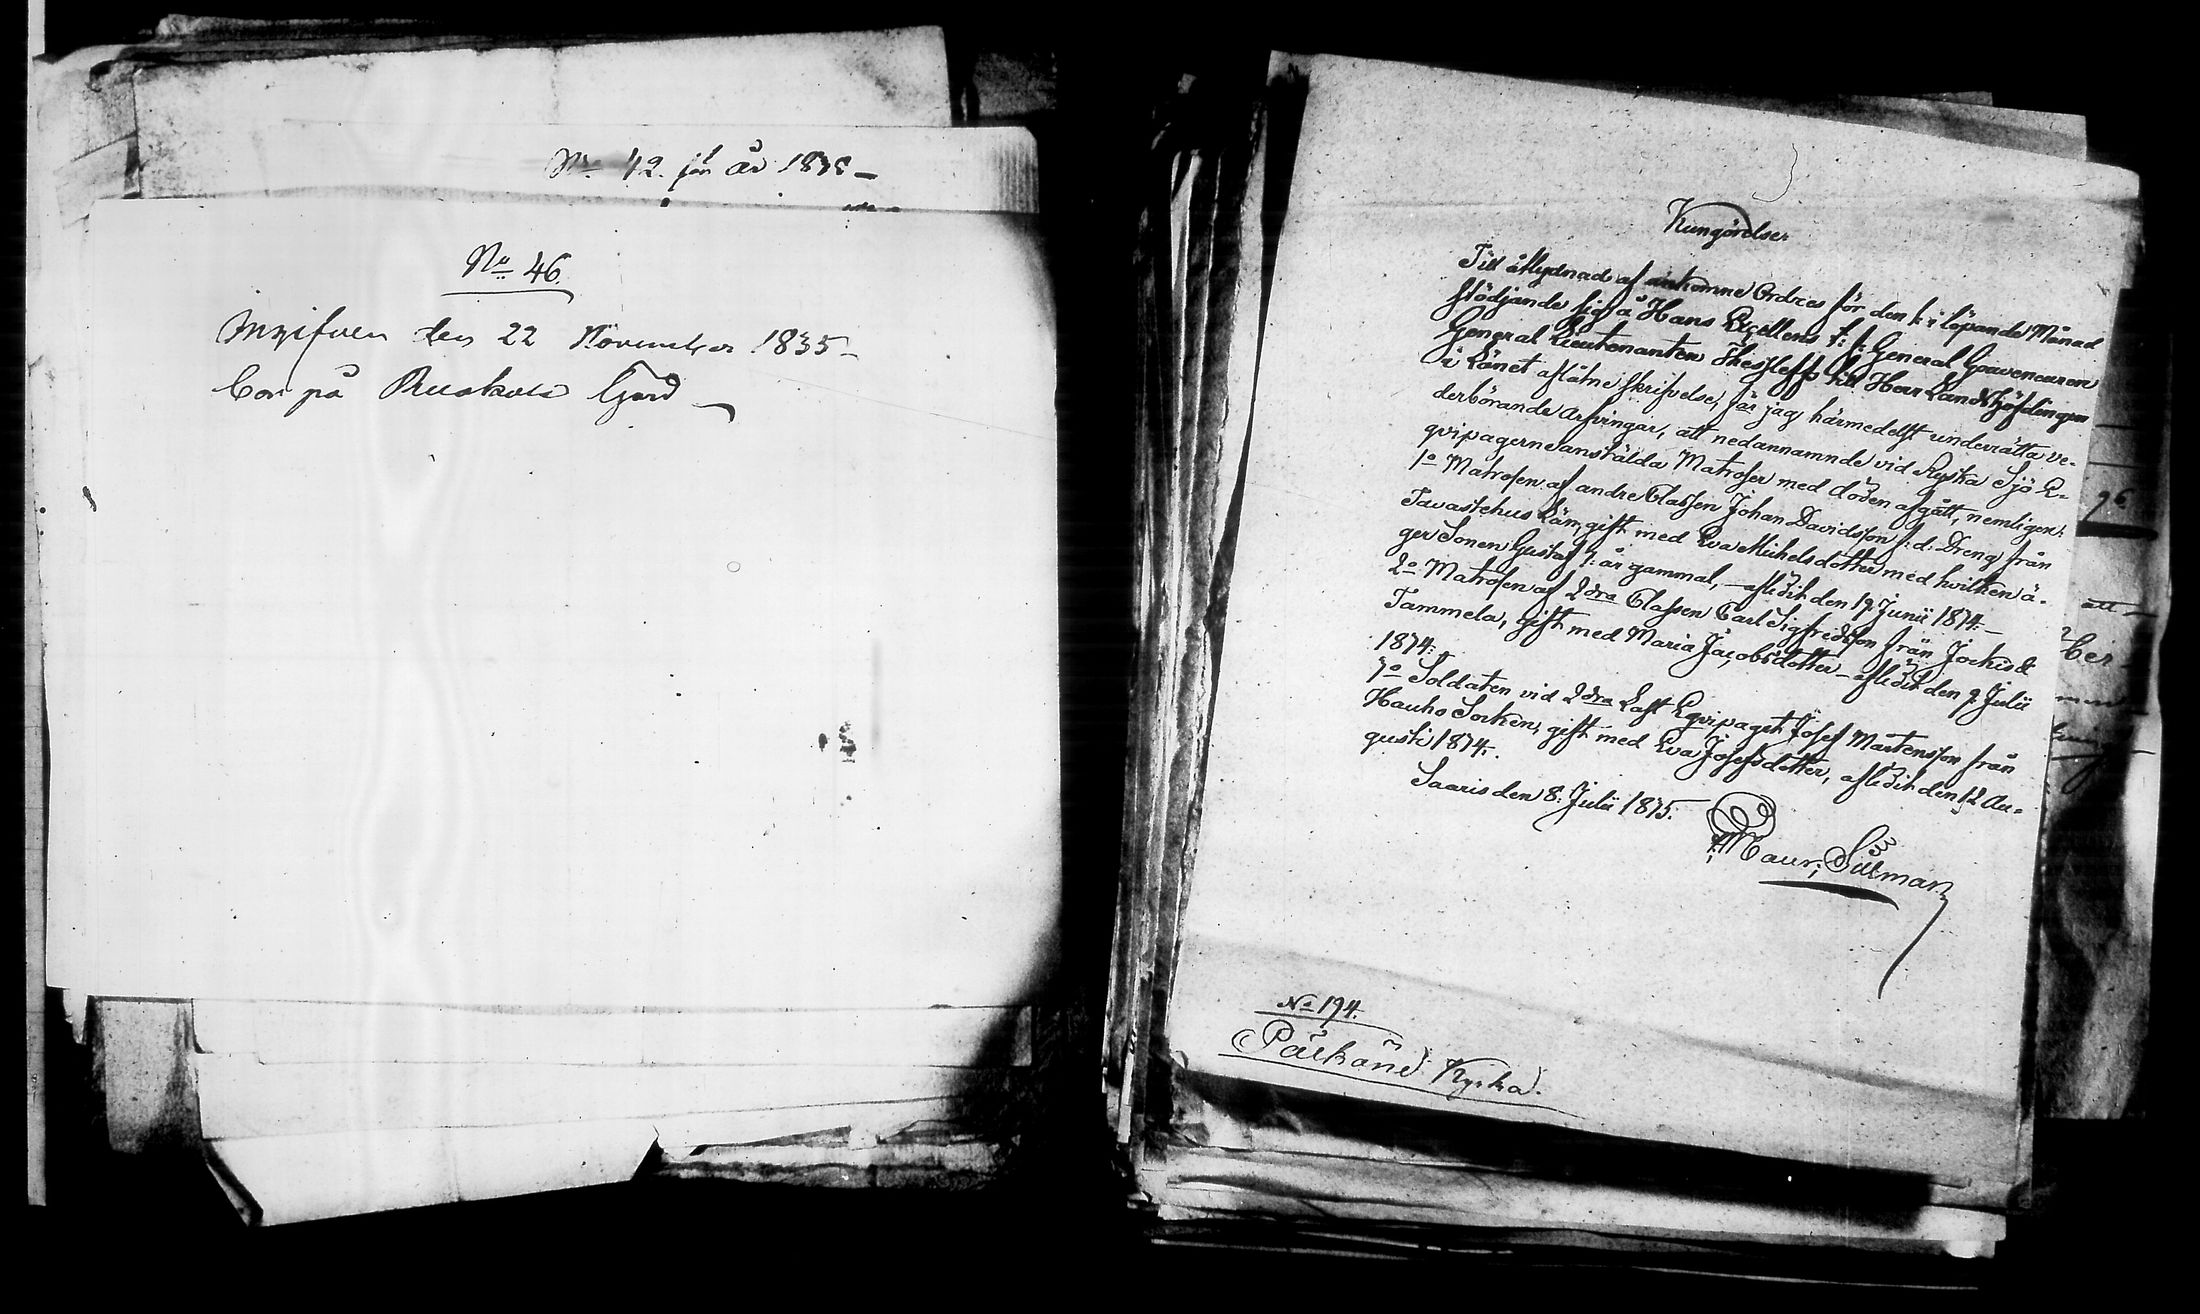 No 42. för år 1838 –
No 46.
Ingifven den 22 November 1835 –
Cor på Ruskola Gård –
Kungörelser
Till åtlydnad af ankomne Ordres för den 1: i löpande Månad
stödjande sig å Hans Excellens t: f: General Gouverneuren
General Lieutenanten Thesleffs till Herr Landshöfdingen
i Länet aflåtne skrifvelse, får jag härmedelst underrätta ve-
derbörande Arfvingar, att nedannamnde vid Ryska Sjö E-
qvipagerne anstälda Matroser med döden afgått, nemligen:
1o Matrosen af andre Classen Johan Davidsson f: d: Dreng från
Tavastehus Län, gift med Eva Michelsdotter med hvilken ä-
ger Sonen Gustaf 7: år gammal, – afledit den 19 Junii 1834: –
2o Matrosen af 2dra Classen Carl Sigfridsson från Jockis &
Tammela, gift med Maria Jacobsdotter – afledit den 9 Julii
1834:
3o Soldaten vid 2dra Last Eqvipaget Josef Mårtensson från
Hauho Socken, gift med Eva Josefsdotter, afledit den 12 Au-
gusti 1834.
Saaris den 8: Julii 1835.
Maur: Silman
No 194.
Pälkäne Kyrka.
96
att